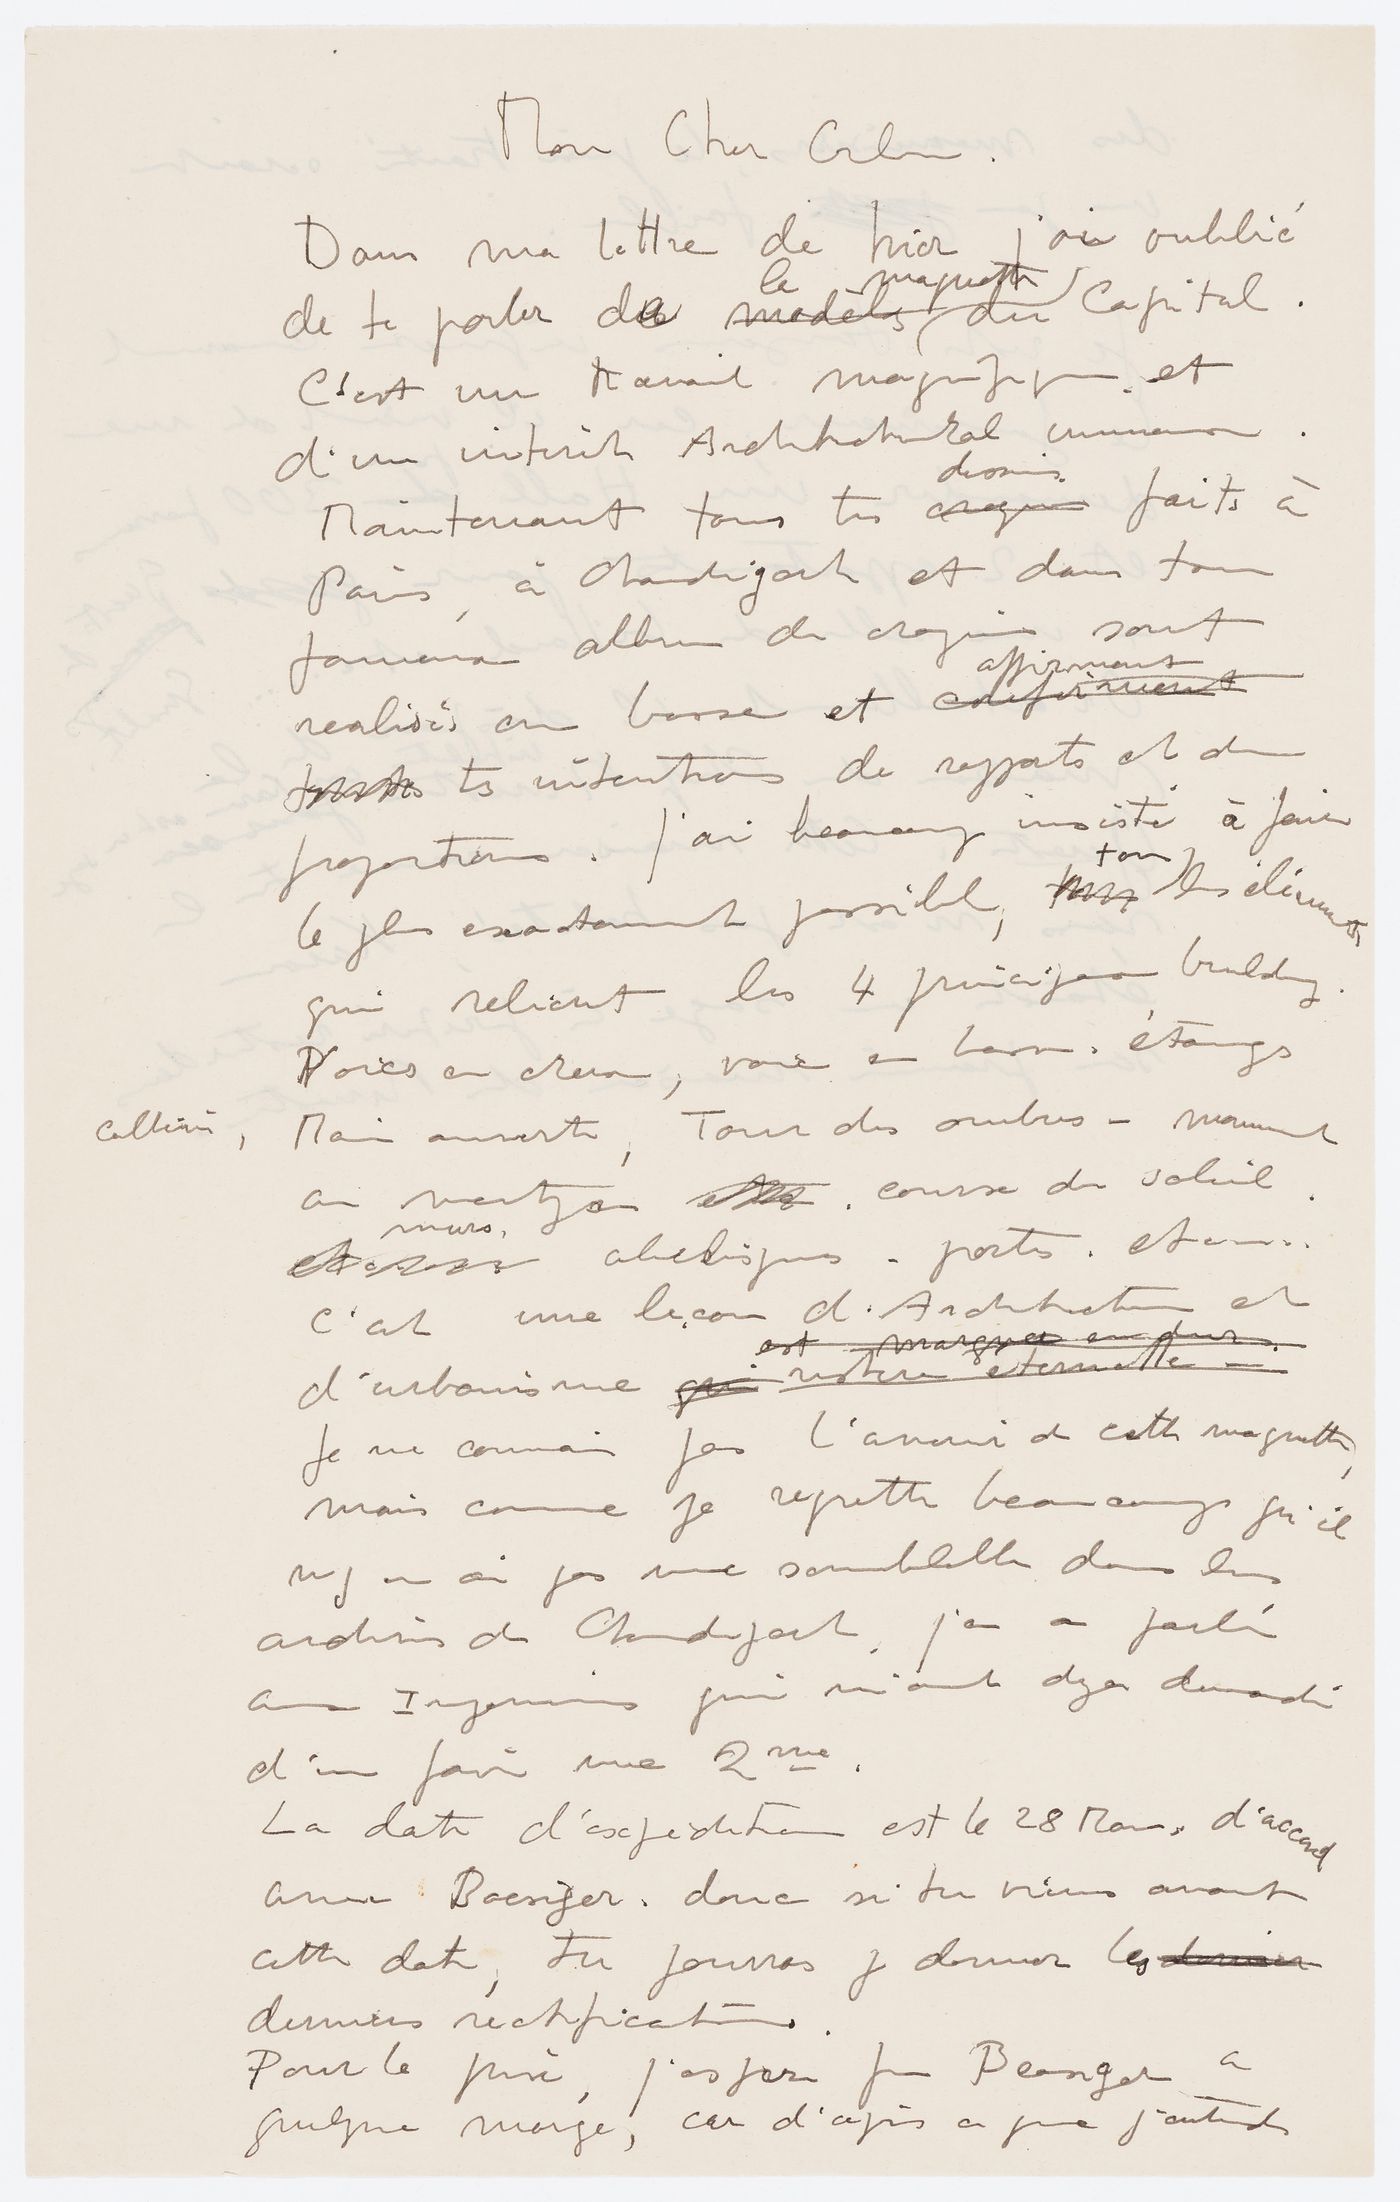 Mon Cher Corbu.
Dans ma lettre de hier j'ai oublié
de te parler de la maquette
modèle du Capital.
C'est un travail magnifique et
d'un intérêt Architectural immense.
dessins
Maintenant tous tes croquis faits à
Paris, à Chandigarh et dans ton
fameux album de croquis sont
affirment
realisés en basse et confirment
tes intentions de rapports et de
proportions. J'ai beaucoup insisté à faire
tous
le plus exactement possible, les éléments
qui relient les 4 principaux building.
Voies en creux, voie en basse. étangs
collines, Main ouverte, Tour des ombres - monument
au martyr. course du soleil.
murs.
obelisques - portes. etc...
C'est une leçon d'Architecture et
est marquée en dur.
d'urbanisme qui restera eternelle -
Je ne connais pas l'avenir de cette maquette,
mais comme je regrette beaucoup qu'il
n'y en ai pas une semblable dans les
archives de Chandigarh, j'en ai parlé
aux Ingenieurs qui m'ont deja demandé
d'en faire une 2me.
La date d'expédition est le 28 Mars, d'accord
avec Boesiger. donc si tu viens avant
cette date, tu pourras y donner les dernier
derniers rectifications.
Pour le prix, j'espere que Beosiger a
quelque marge, car d'apris ce que j'entends